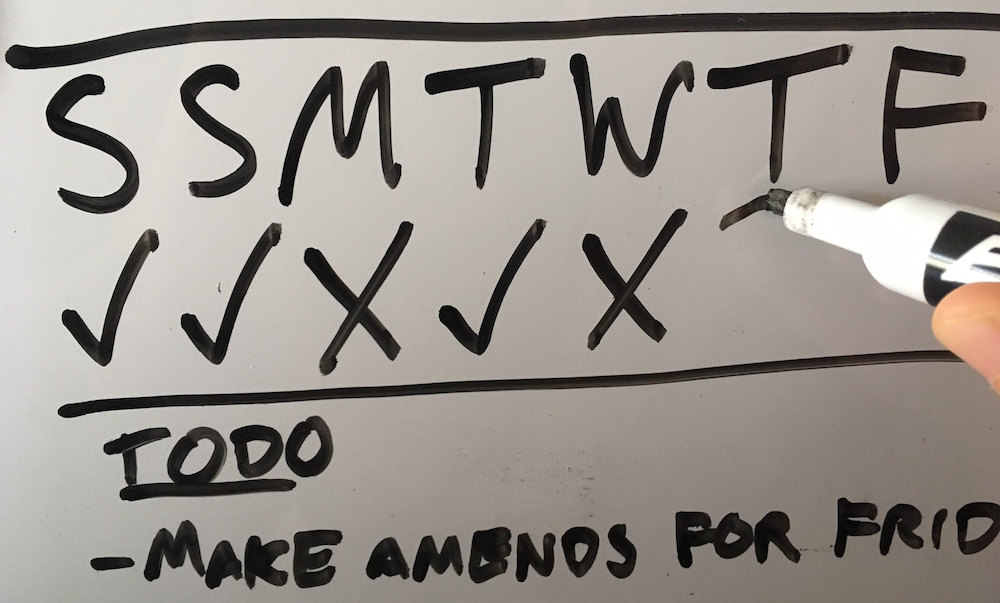 S S M T W T F
✓ ✓ X ✓ X
TODO
- MAKE AMENDS FOR FRID